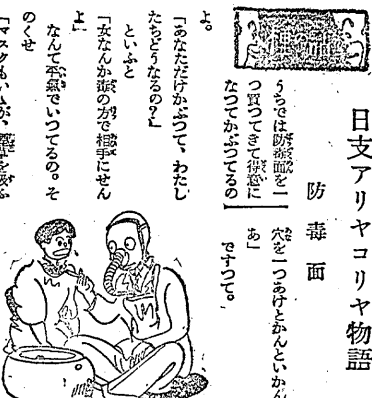 日支アリヤコリヤ物語
防毒面
うちでは防毒面を一
つ買つてきて得意に
なつてかぶつてるの
よ。
「あなただけかぶつて、わたし
たちどうなるの?」
といふと
「女なんか毒の方で相手にせん
よ」
なんて平氣でいつてるの。そ
のくせ
「マスクもいゝが、煙草を吸ふ
穴を一つあけとかんといかん
あ」
ですつて。